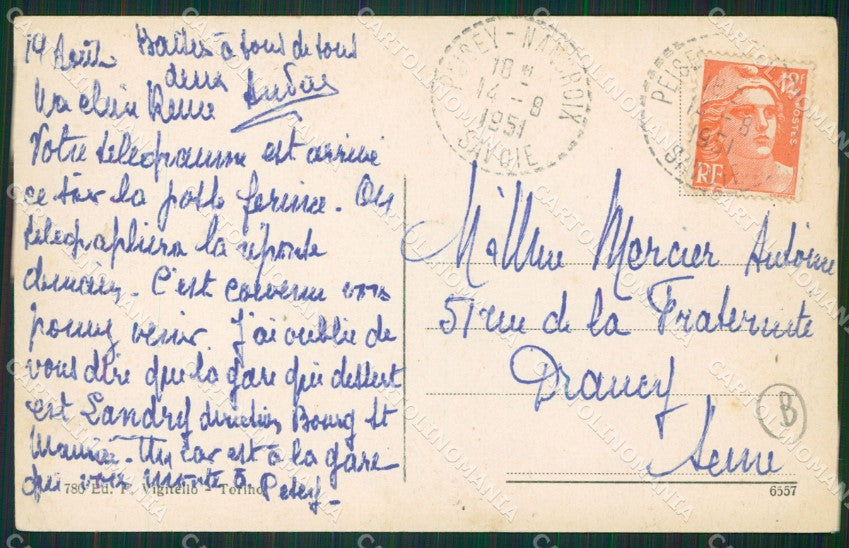 14 Août Baisers à tous de tous
deux
Ma chère Reine Andrée
Votre télégramme est arrivé
ce soir la poste fermée. On
télégraphiera la réponse
demain. C'est convenu vous
pouvez venir. J'ai oublié de
vous dire que la gare qui dessert
est Landry direction Bourg St
Maurice. Un car est à la gare
qui vous monte à Peisey
780 Ed. F. Vigitello - Torino
PEISEY-NANCROIX
18 H
14-8
1951
SAVOIE
12F
POSTES
RF
PEISEY
14-8
1951
Mr Mme Mercier Antoine
51 rue de la Fraternité
Drancy
Seine
B
6557
CARTOLINOMANIA